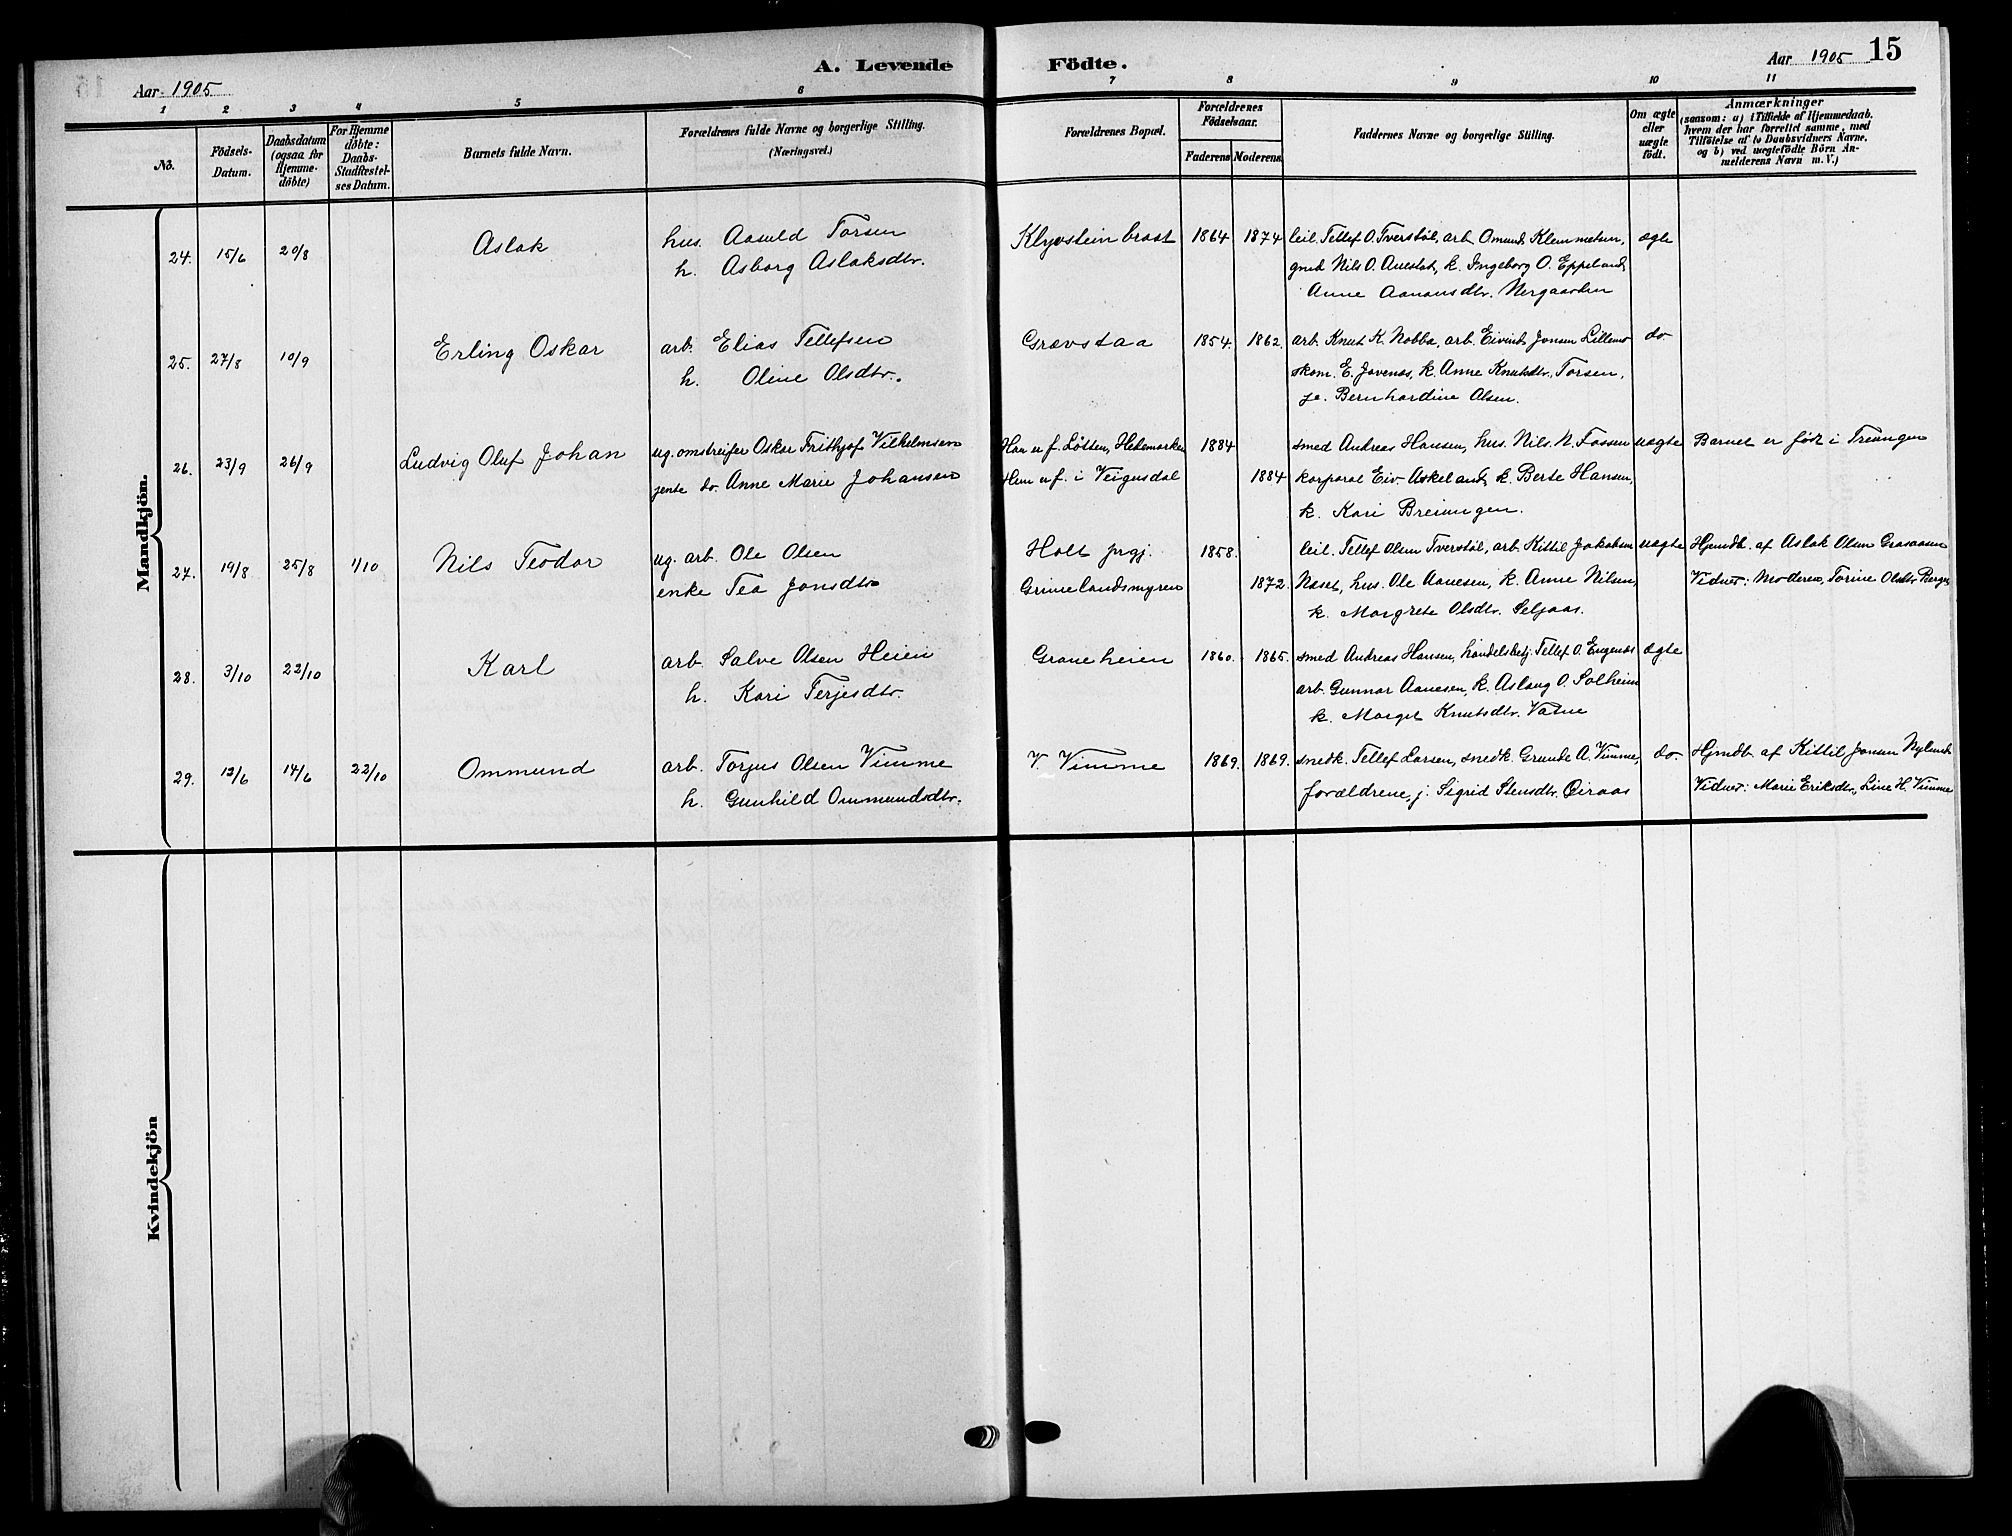 Aar 1905
A. Levende Födte.
Aar 1905
15
1 2 3 4 5 6 7 8 9 10 11
No.
Födsels-Datum.
Daabsdatum (ogsaa for Hjemme-döbte)
For Hjemme döbte: Daabs-Stadfæstel-ses Datum.
Barnets fulde Navn.
Forældrenes fulde Navne og borgerlige Stilling.
(Næringsvei.)
Forældrenes Bopæl.
Forældrenes Födselsaar.
Faderens Moderens.
Faddernes Navne og borgerlige Stilling.
Om ægte eller uægte födt.
Anmærkninger
(saasom: a) i Tilfælde af Hjemmedaab.
hvem der har forrettet samme, med
Tilföielse af to Daabsvidners Navne,
og b) ved uægtefödte Börn An-
melderens Navn m. V.)
Mandkjön.
24. 15/6 20/8 Aslak hus. Aasuld Torsen Klyvstein braat 1864 1874 leil. Tellef O. Tverstøl, arb. Omund Klemmetsen, ægte
h. Asborg Aslaksdtr. gmd Nils O. Auestat, k. Ingeborg O. Eppeland
Anne Aanonsdtr. Nergaarden
25. 27/8 10/9 Erling Oskar arb. Elias Tellefsen Grævstaa 1854. 1862. arb. Knut K. Nobba, arb. Eivind Jonsen Lillemo do.
h. Oline Olsdtr. skom. E. Jovenæs, k. Anne Knutsdtr. Torsen,
je. Bernhardine Olsen.
26. 23/9 26/9 Ludvig Oluf Johan ug. omstreifer Oskar Frithjof Vilhelmsen Han er f. Løtten, Hedemarken 1884 smed Andreas Hansen, hus. Nils N. Fossen uægte Barnet er født i Treungen
jente do. Anne Marie Johansen Hun er f. i Veigusdal 1884 korporal Eiv. Askeland, k. Berte Hansen,
k. Kari Breiungen.
27. 19/8 25/8 1/10 Nils Teodor ug. arb. Ole Olsen Holt prgj. 1858. leil. Tellef Olsen Tverstøl, arb. Kittil Jakobsen uægte Hjemdb. af Aslak Olsen Graaaasen
enke Tea Jonsdtr Grimelandsmyren 1872. Næset, hus. Ole Aanesen, k. Anne Nilsen, Vidner: Moderen, Torine Olsdtr Berge
k. Margrete Olsdtr. Seljaas.
28. 3/10 22/10 Karl arb. Salve Olsen Heien Graneheien 1860. 1865. smed Andreas Hansen, handelsbetj. Tellef O. Engenæs ægte
h. Kari Terjesdtr. arb. Gunnar Aanesen, k. Aslaug O. Solheim
k. Marget Knutsdtr. Vatne
29. 12/6 14/6 22/10 Ommund arb. Torjus Olsen Vimme V. Vimme 1869. 1869. snedk. Tellef Larsen, snedk. Grunde A. Vimme, do. Hjmdb. af Kittil Jonsen Nylund
h. Gunhild Ommundsdtr. forældrene, j. Sigrid Stensdtr. Øiraas Vidner: Marie Eriksdtr, Line H. Vimme
Kvindekjön